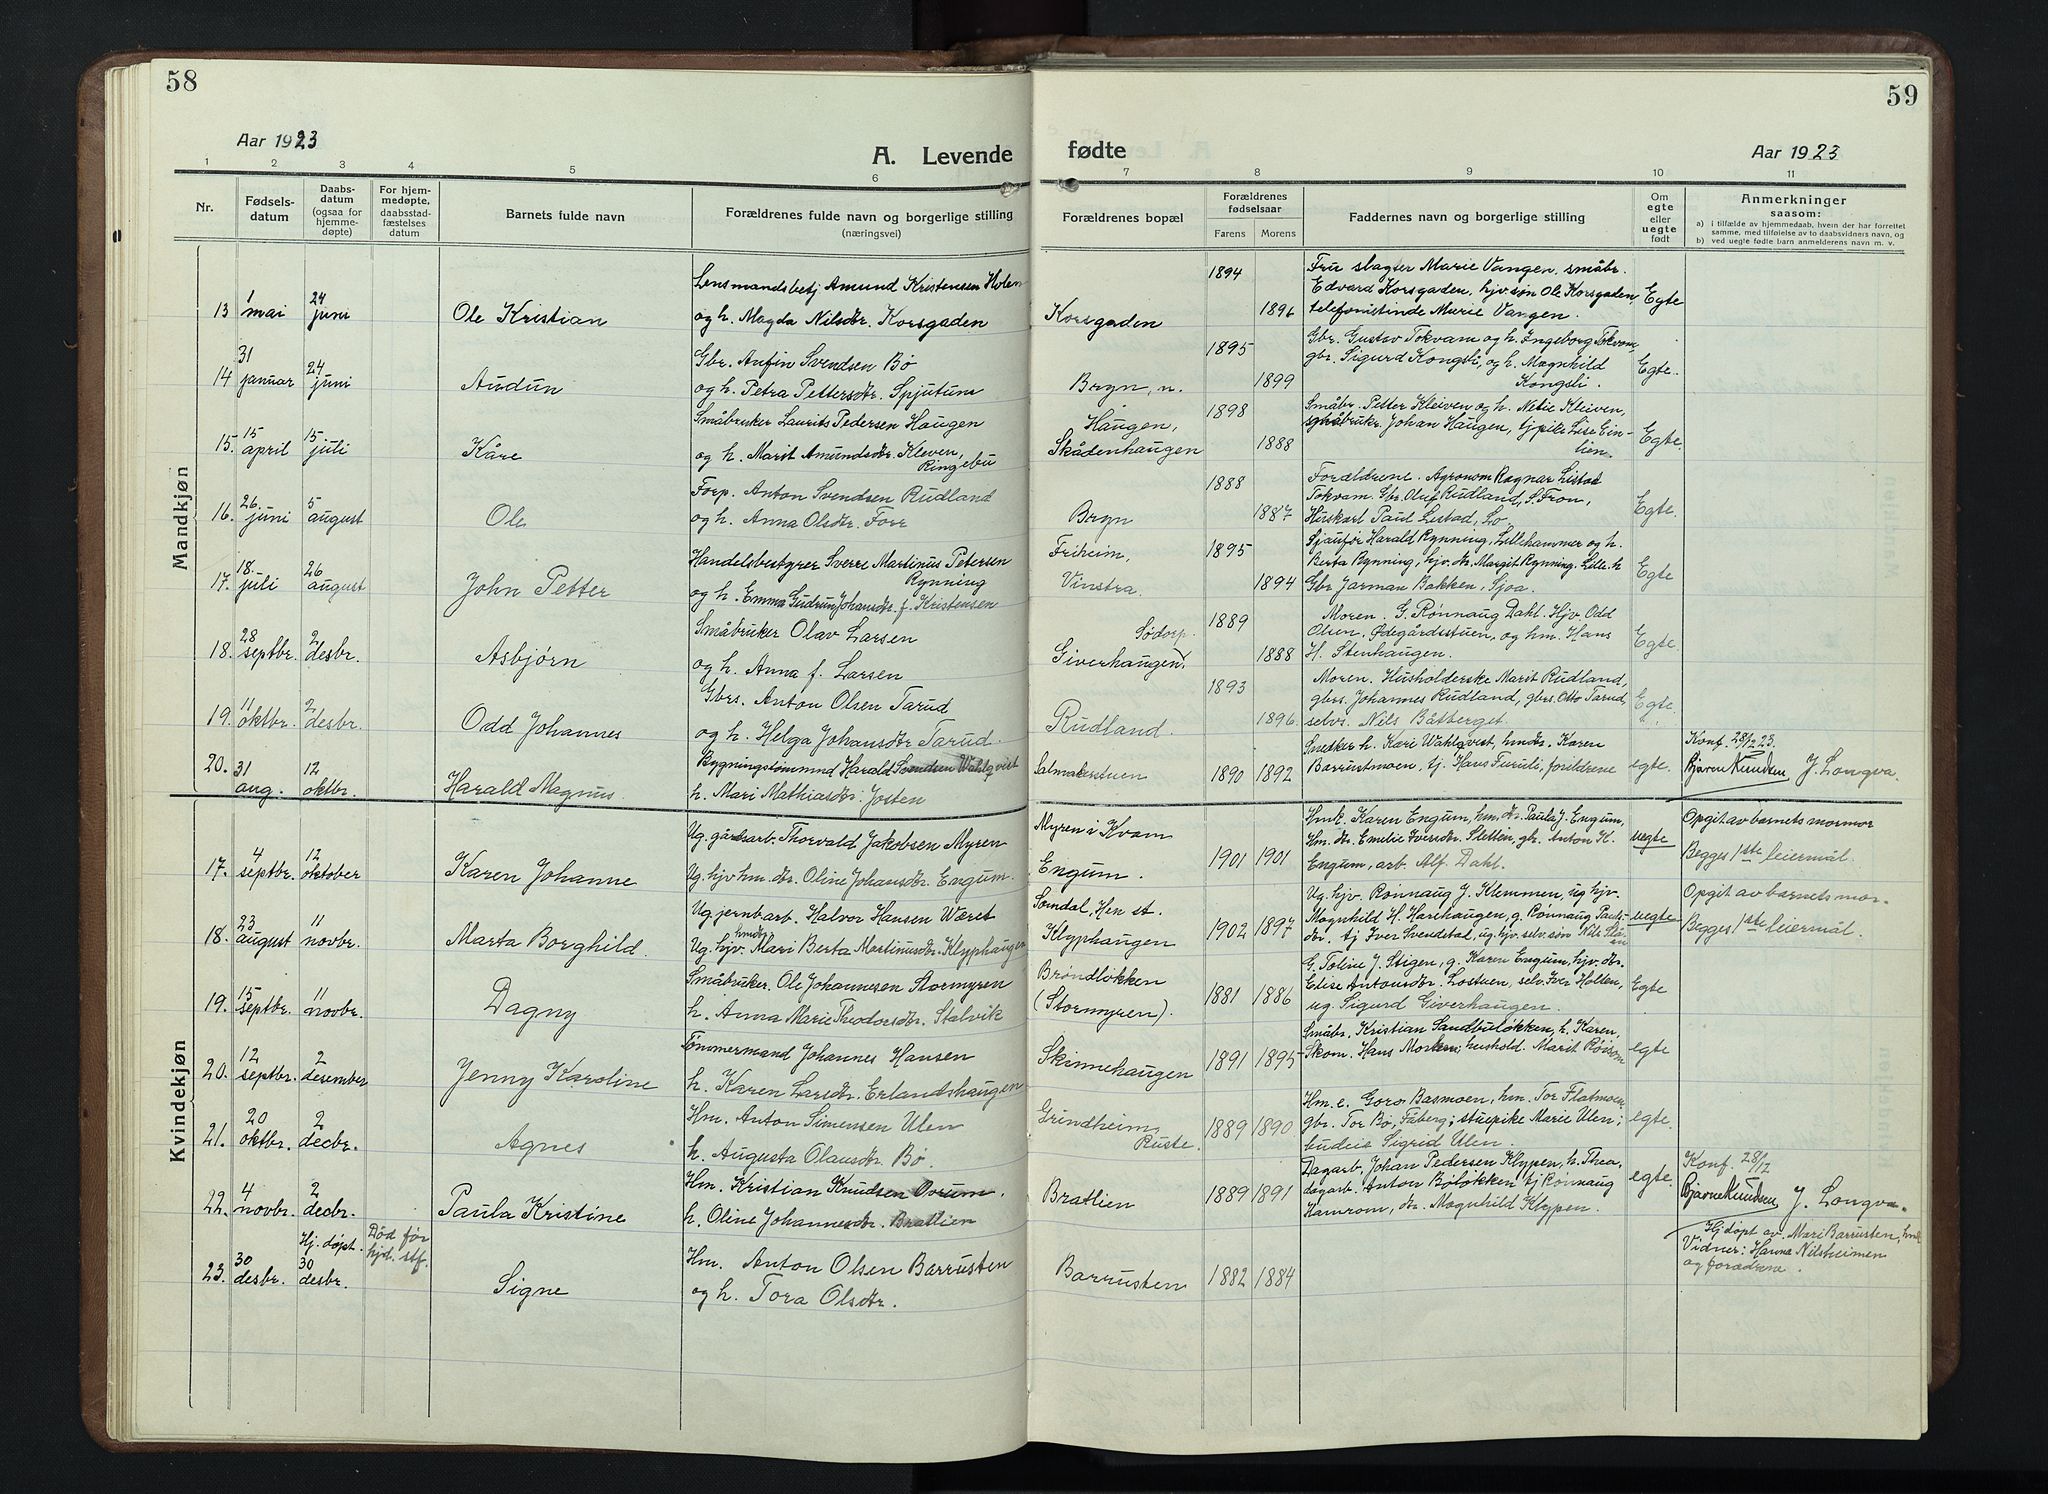 58
59
Aar 1923
A. Levende
fødte
Aar 1923
1 2 3 4 5 6 7 8 9 10 11
Nr.
Fødsels-
datum
Daabs-
datum
(ogsaa for
hjemme-
døpte)
For hjem-
medøpte,
daabsstad-
fæstelses
datum
Barnets fulde navn
Forældrenes fulde navn og borgerlige stilling
(næringsvei)
Forældrenes bopæl
Forældrenes
fødselsaar
Farens Morens
Faddernes navn og borgerlige stilling
Om
egte
eller
uegte
født
Anmerkninger
saasom:
a) i tilfælde av hjemmedaab, hvem der har forrettet
samme, med tilføielse av to daabsvidners navn, og
b) ved uegte fødte barn anmelderens navn m. v.
Mandkjøn
13 1 mai 24 juni Ole Kristian
Lensmandsbetj Amund Kristensen Holen
og h. Magda Nilsdtr. Korsgaden
Korsgaden 1894 1896
Fru slagter Marie Vangen, småbr.
Edvard Korsgaden, hjv. søn Ole Korsgaden
telefonistinde Marie Vangen.
Egte
14 31 januar 24 juni Audun
Gbr. Anfin Svendsen Bø
og h. Petra Pettersdtr. Spjutum
Bryn, n. 1895 1899
Gbr. Gustav Tokvam og h. Ingeborg Tokvam,
gbr. Sigurd Kongsli, og h. Magnhild
Kongsli.
Egte.
15. 15 april 15 juli Kåre
Småbruker Laurits Pedersen Haugen
og h. Marit Amundsdtr. Kleven,
Ringebu
Haugen,
Skådenhaugen 1898 1888
Småbr. Petter Kleiven og h. Netie Kleiven,
småbrukr. Johan Haugen, tjpike Lise Ein-
lien.
Egte.
16. 26 juni 5 august Ole
Forp. Anton Svendsen Rudland
og h. Anna Olsdtr. Forr
Bryn 1888 1887
Forældrene. Agronom Ragnar Listad
Tokvam. Gbr Oluf Rudland, S. Fron,
Huskarl Paul Listad, Lo.
Egte.
17. 18 juli 26 august John Petter
Handelsbestyrer Sverre Martinus Petersen
Rynning
og h. Emma Gudrun Johansdtr. f. Kristensen
Friheim,
Vinstra. 1895 1894
Sjauför Harald Rynning, Lillehammer og h.
Berta Rynning, hjv. dtr. Margit Rynning. Lilleh
Gbr Jarman Bakken, Sjoa.
Egte
18. 28 septbr. 2 desbr. Asbjørn
Småbruker Olav Larsen
og h. Anna f. Larsen
Sødorp.
Giverhaugen 1889 1888
Moren. G. Rønnaug Dahl. Hjv. Odd
Olsen, Ødegårdsstuen, og hm. Hans
H. Stenhaugen.
Egte.
19. 11 oktbr. 2 desbr. Odd Johannes
Gbrs. Anton Olsen Tarud
og h. Helga Johansdtr Tarud.
Rudland. 1893 1896.
Moren. Husholderske Marit Rudland,
gbrs. Johannes Rudland, gbrs. Otto Tarud,
selvs. Nils Båtberget.
Egte.
20. 31 aug. 12 oktbr. Harald Magnus
Bygningstømmmd Harald Svendsen Wahlqvist
h. Mari Mathiasdtr. Josten
Salmakerstuen 1890 1892
Snedker h. Kari Wahlqvist, hmdtr. Karen
Barrustmoen, tj. Hans Furuli, foreldrene
egte.
Konf. 28/12 23.
Bjarne Knudsen J. Longva.
Kvindekjøn
17. 4 septbr. 12 oktober Karen Johanne
Ug. gårdsarb. Thorvald Jakobsen Myren
Ug. hjv hm. dtr. Oline Johansdtr. Engum.
Myren i Kvam
Engum. 1901 1901
Hmk. Karen Engum, hm. dtr. Paula J. Engum,
Hm. dtr. Emelie Iversdtr. Sletten, gbr. Anton H.
Engum, arb. Alf Dahl.
uegte
Opgit av barnets mormor
Begges 1ste leiermål.
18. 23 august 11 novbr. Marta Borghild.
Ug. jernb arb. Halvor Hansen Været
Ug. hjv. hmdtr Mari Berta Martinusdtr. Klyphaugen
Sømdal, Hen st.
Klyphaugen 1902 1897
Ug. hjv. Rønnaug J. Klemmen, ug hjv.
Magnhild H. Harehaugen, g. Rønnaug Pauls-
dtr. tj Iver Svendstal, ug. hjv. selv. søn Nils
uegte
Opgit av barnets mor.
Begges 1ste leiermål.
19. 15 septbr. 11 novbr. Dagny
Småbruker. Ole Johannesen Stormyren
h. Anna Marie Theodorsdtr. Stalvik
Brøndløkken
(Stormyren). 1881 1886
G. Toline J. Stigen, g. Karen Engum, hjv. dtr.
Elise Antonsdtr. Lostuen, selv. Iver Holden,
ug. Sigurd Giverhaugen.
Egte
20. 12 septbr. 2 desember Jenny Karoline
Tømmermand Johannes Hansen
h. Karen Larsdtr. Erlandshaugen
Skinnehaugen 1891 1895
Småbr. Kristian Sandbuløkken, h. Karen,
Skom. Hans Morken; hushold. Marit Røisom
egte
21. 20 oktbr. 2 decbr. Agnes
Hm. Anton Simensen Ulen
h. Augusta Olausdtr. Bø.
Grindheim,
Ruste. 1889 1890
Hm. e. Goro Basmoen, hm. Tor Flatmoen,
gbr. Tor Bø, Fåberg; stuepike Marie Ulen;
budeie Sigrid Ulen.
egte.
22. 4 novbr. 2 decbr. Paula Kristine
Hm. Kristian Knudsen Ovrum.
h. Oline Johannesdtr. Bratlien
Bratlien 1889 1891
Dagarb. Johan Pedersen Klypen, h. Thea,
dagarb. Anton Bøløkken tj Rønnaug
Hamrom, dtr. Magnhild Klypen.
egte.
Konf. 28/12
Bjarne Knudsen J. Longva.
23. 30 desbr. Hj. døpt. 30 desbr. Død før
hjd. stf.
Signe
Hm. Anton Olsen Barrusten
og h. Tora Olsdtr.
Barrusten 1882 1884
Hjdøpt av Mari Barrusten, hmk
Vidner: Hanna Nilsheimen
og forældrene.